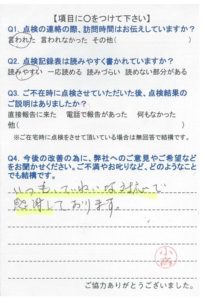 【項目に○をつけて下さい】
Q1. 点検の連絡の際、訪問時間はお伝えしていますか?
言われた 言われなかった その他( )
Q2. 点検記録表は読みやすく書かれていますか?
読みやすい 一応読める 読みづらい 読めない部分がある
Q3. ご不在時に点検させていただいた後、点検結果の
ご説明はありましたか?
直接報告に来た 電話で報告があった 何もなかった
他( )
※ご在宅時に点検をさせて頂いている場合は無回答で結構です。
Q4. 今後の改善の為に、弊社へのご意見やご希望など
をお聞かせください。ご不満やお叱りなど、どのようなこと
でも結構です。
いつもていねいな対応で
感謝しております。
小西
ご協力ありがとうございました。